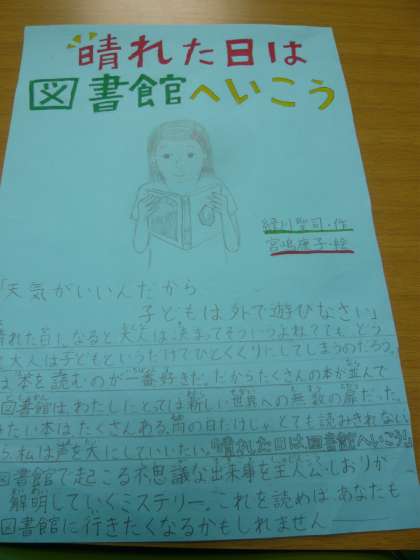 晴れた日は
図書館へいこう
緑川聖司・作
宮嶋康子・絵
「天気がいいんだから
子どもは外で遊びなさい」
晴れた日になると大人は決まってそういうよね?でも、どう
て大人は子どもというだけでひとくくりにしてしまうのだろう。
は本を読むのが一番好きだ。だからたくさんの本が並んで
図書館は、わたしにとっては新しい世界への無数の扉だった。
みたい本はたくさんある。雨の日だけじゃ、とても読みきれない
ら、私は声を大にしていいたい。「晴れた日は図書館へいこう!」
図書館で起こる不思議な出来事を主人公・しおりが
解明していくミステリー。これを読めば あなたも
図書館に行きたくなるかもしれません――